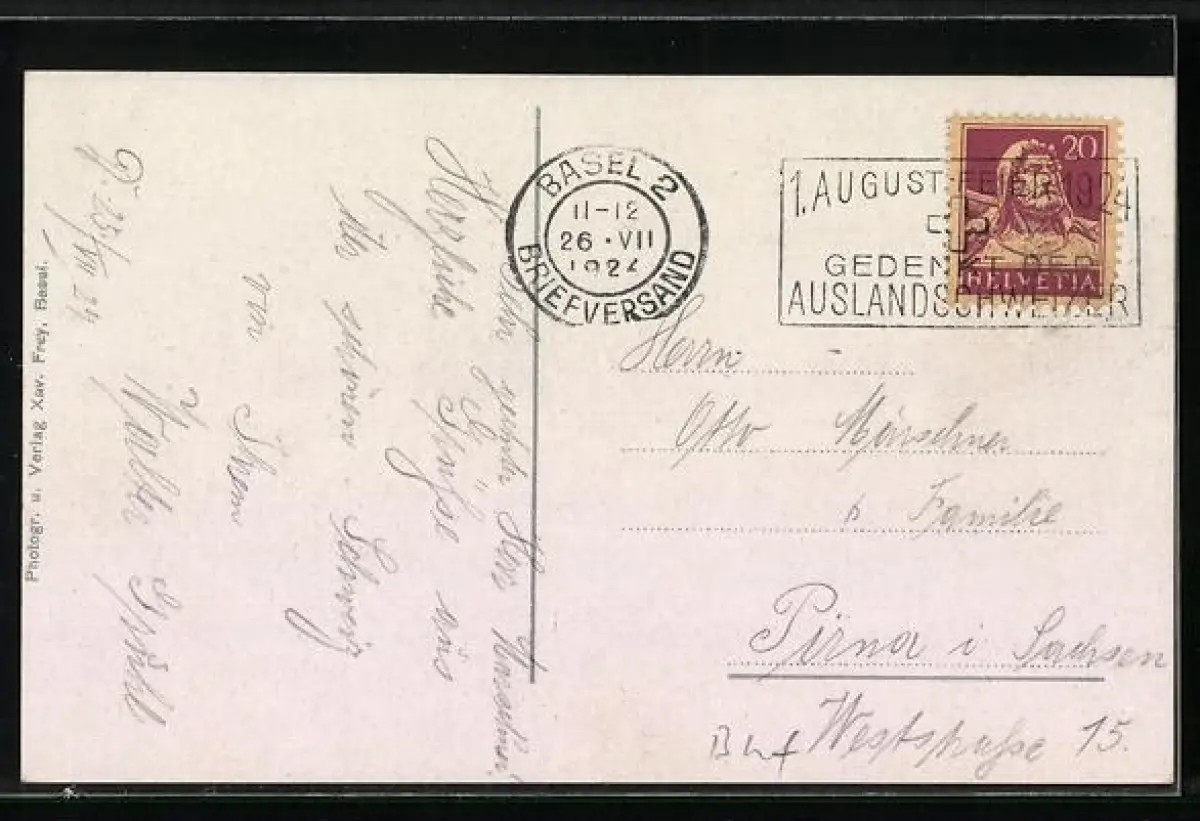 BASEL 2
11-12
26 · VII
1924
BRIEFVERSAND
20
HELVETIA
1. AUGUST-FEIER 1924
GEDENKT DER
AUSLANDSCHWEIZER
Sehr geehrter Herr
Herzliche Grüsse aus
der schönen Schweiz
von Ihrem
Walter
25/VII 24
Photogr. u. Verlag Xav. Frey, Basel.
Herrn
Otto Mirschner
Familie
Pirna i Sachsen
Weststrasse 15.